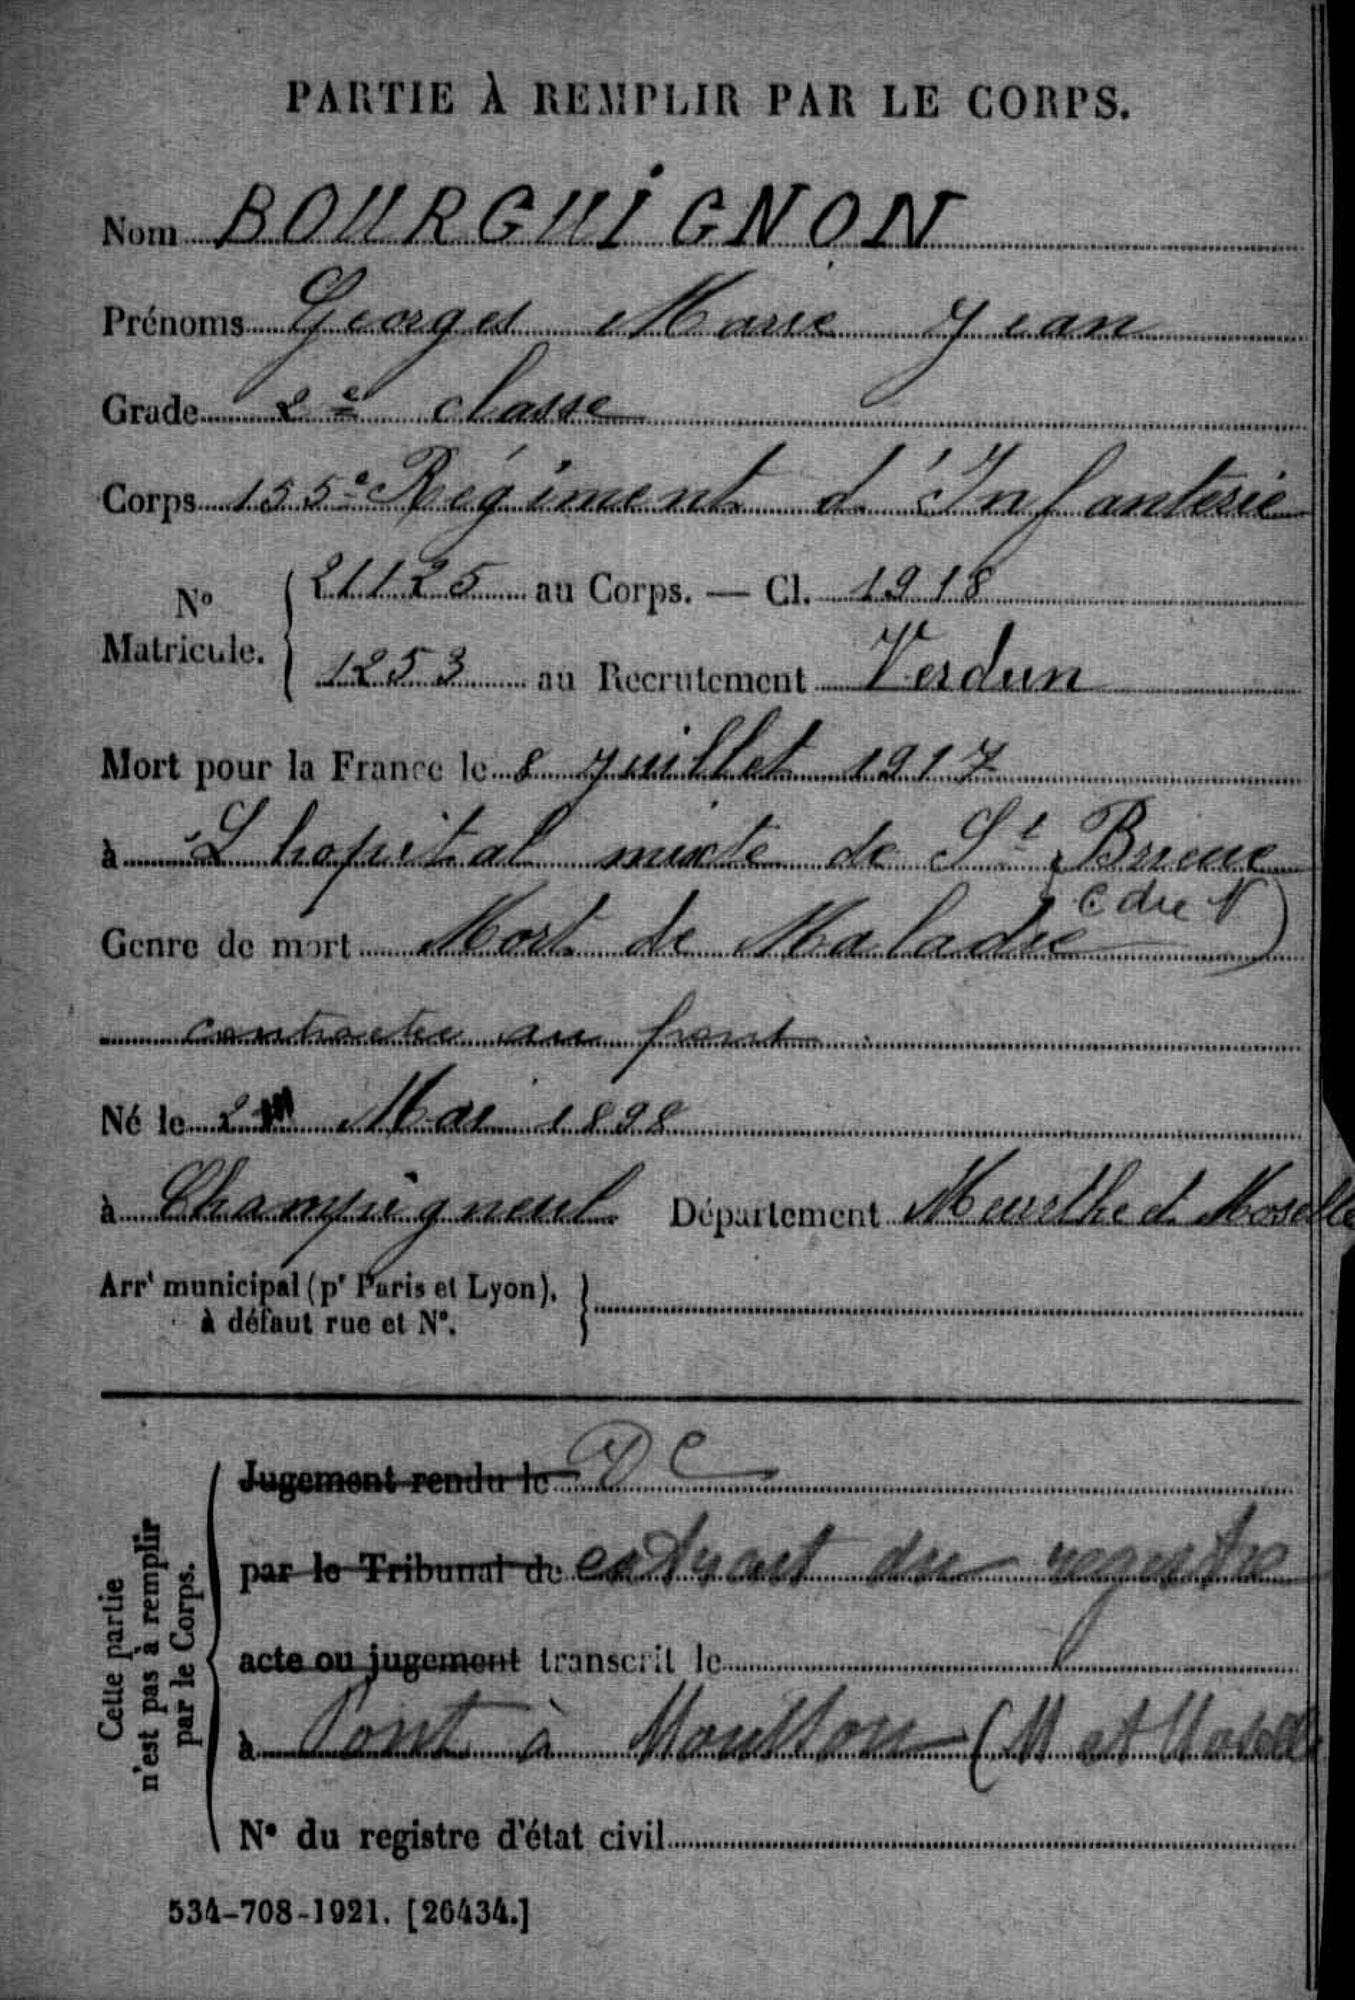 PARTIE À REMPLIR PAR LE CORPS.
Nom BOURGUIGNON
Prénoms Georges Marie Jean
Grade 2e classe
Corps 155e Régiment d'Infanterie
No Matricule. 21125 au Corps. — Cl. 1918
1253 au Recrutement Verdun
Mort pour la France le 8 Juillet 1917
à L'hopital mixte de St Brieuc
(C du N)
Genre de mort Mort de Maladie
contractée au front.
Né le Mai 1898
à Champigneul Département Meurthe et Moselle
Arrt municipal (pr Paris et Lyon), à défaut rue et No.
Cette partie n'est pas à remplir par le Corps.
Jugement rendu le
par le Tribunal de extrait du registre
acte ou jugement transcrit le
à Pont à Mousson (M et Moselle
No du registre d'état civil
534-708-1921. [26434.]